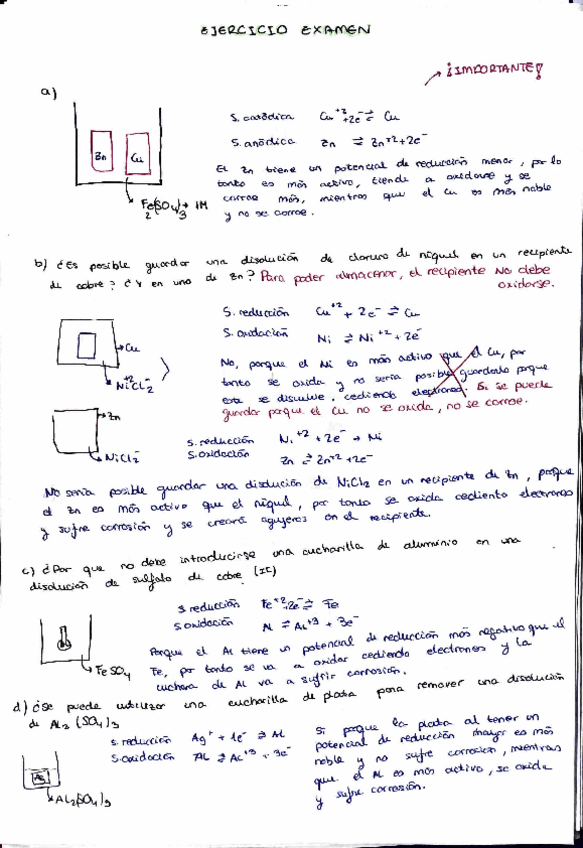 EJERCICIO EXAMEN
¡IMPORTANTE!
a)
S. catódica Cu+2 +2e- ⇌ Cu
S. anódica Zn ⇌ Zn+2+2e-
Zn Cu
El Zn tiene un potencial de reducción menor, por lo
tanto es más activo, tiende a oxidarse y se
corroe más, mientras que el Cu es más noble
y no se corroe.
Fe2(SO4)3 1M
b) ¿Es posible guardar una disolución de cloruro de níquel en un recipiente
de cobre? ¿Y en uno de Zn? Para poder almacenar, el recipiente No debe
oxidarse.
S. reducción Cu+2 + 2e- ⇌ Cu
S. oxidación Ni ⇌ Ni+2 + 2e-
Cu
NiCl2
No, porque el Ni es más activo que el Cu, por
tanto se oxida y no sería posible guardarlo porque
esta se disuelve, cediendo electrones. Si se puede
guardar porque el Cu no se oxida, no se corroe.
Zn
NiCl2
S. reducción Ni+2 + 2e- → Ni
S. oxidación Zn ⇌ Zn+2 +2e-
No sería posible guardar una disolución de NiCl2 en un recipiente de Zn, porque
el Zn es más activo que el níquel, por tanto se oxida cediendo electrones
y sufre corrosión y se creará agujeros en el recipiente.
c) ¿Por que no debe introducirse una cucharilla de aluminio en una
disolución de sulfato de cobre (II)
S reducción Fe+2+2e- ⇌ Fe
S oxidación Al ⇌ Al+3 + 3e-
FeSO4
Porque el Al tiene un potencial de reducción más negativo que el
Fe, por tanto se va a oxidar cediendo electrones y la
cuchara de Al va a sufrir corrosión.
d) ¿Se puede utilizar una cucharilla de plata para remover una disolución
de Al2(SO4)3
S. reducción Ag+ + 1e- ⇌ Al
S. oxidación Al ⇌ Al+3 + 3e-
Ag
Al2(SO4)3
Si porque la plata al tener un
potencial de reducción mayor es más
noble y no sufre corrosion, mientras
que el Al es más activo, se oxida
y sufre corrosión.